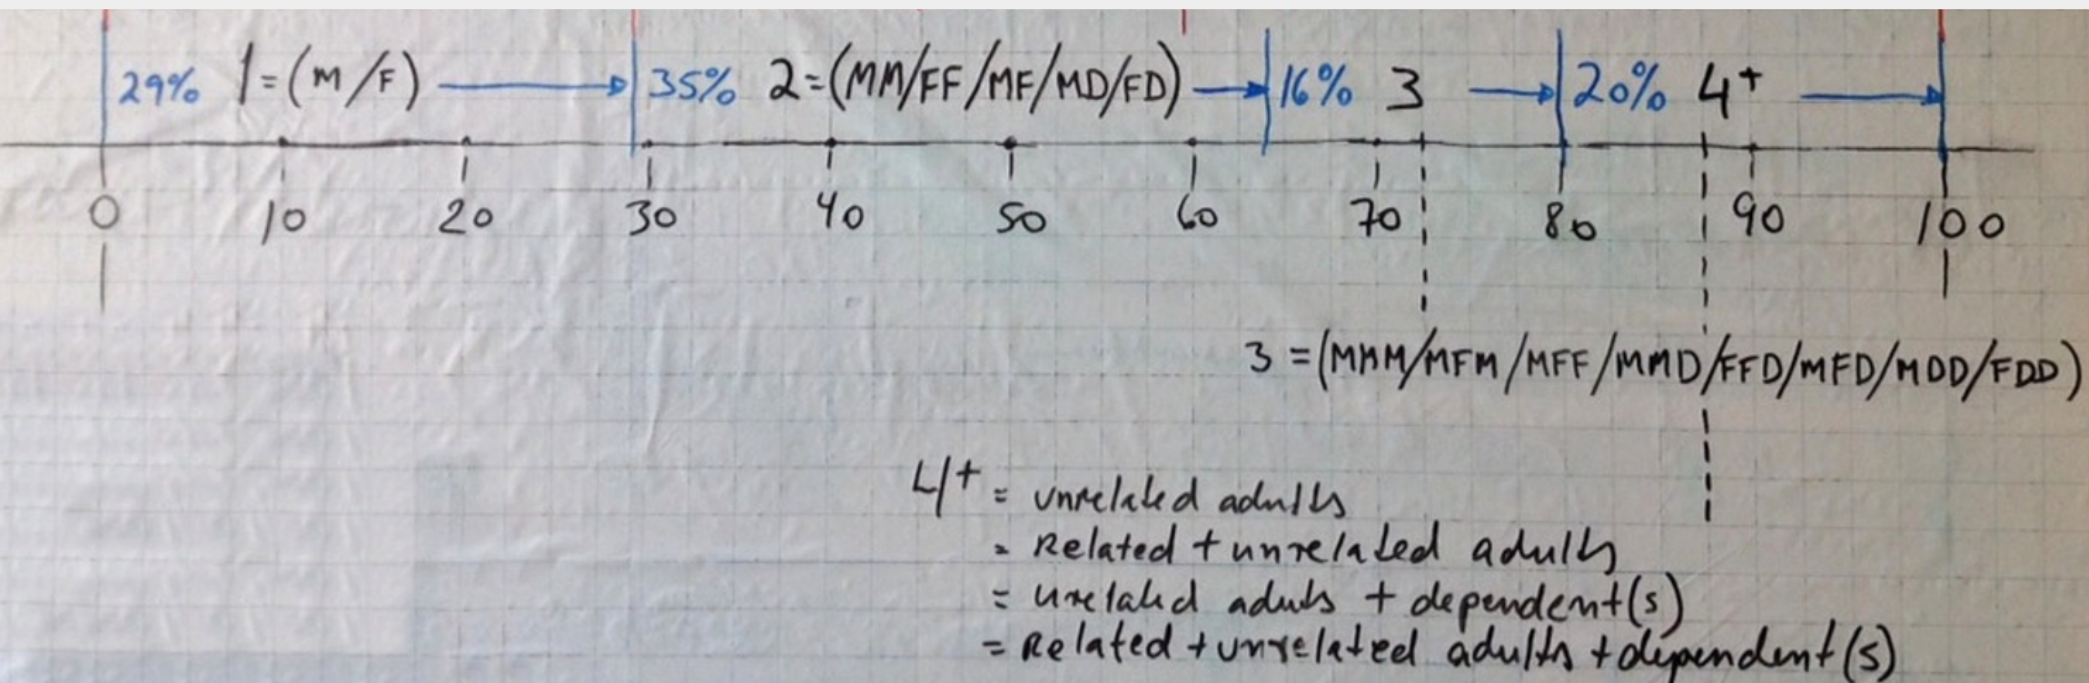 29% 1=(M/F) 35% 2=(MM/FF/MF/MD/FD) 16% 3 20% 4+
0 10 20 30 40 50 60 70 80 90 100
3=(MMM/MFM/MFF/MMD/FFD/MFD/MDD/FDD)
4+ = unrelated adults
= Related + unrelated adults
= unrelated adults + dependent(s)
= Related + unrelated adults + dependent(s)